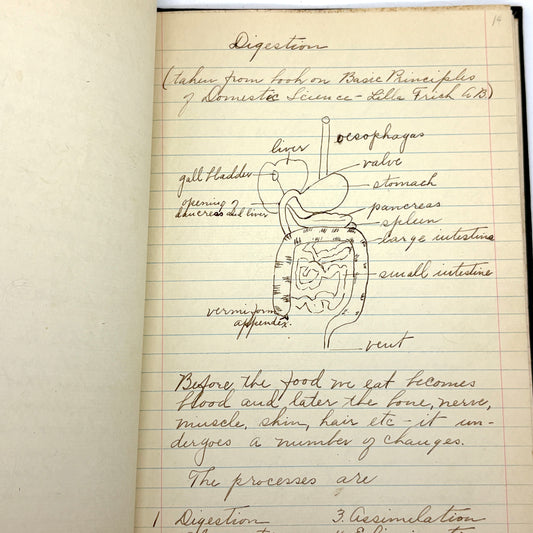 14
Digestion
(taken from book on Basic Principles
of Domestic Science - Lilla Frich A.B.)
oesophagas
liver
valve
gall bladder
stomach
opening of
pancreas and liver
pancreas
spleen
large intestine
small intestine
vermiform
appendix.
vent
Before the food we eat becomes
blood and later the bone, nerve,
muscle, skin, hair etc - it un-
dergoes a number of changes.
The processes are
1 Digestion 3. Assimilation